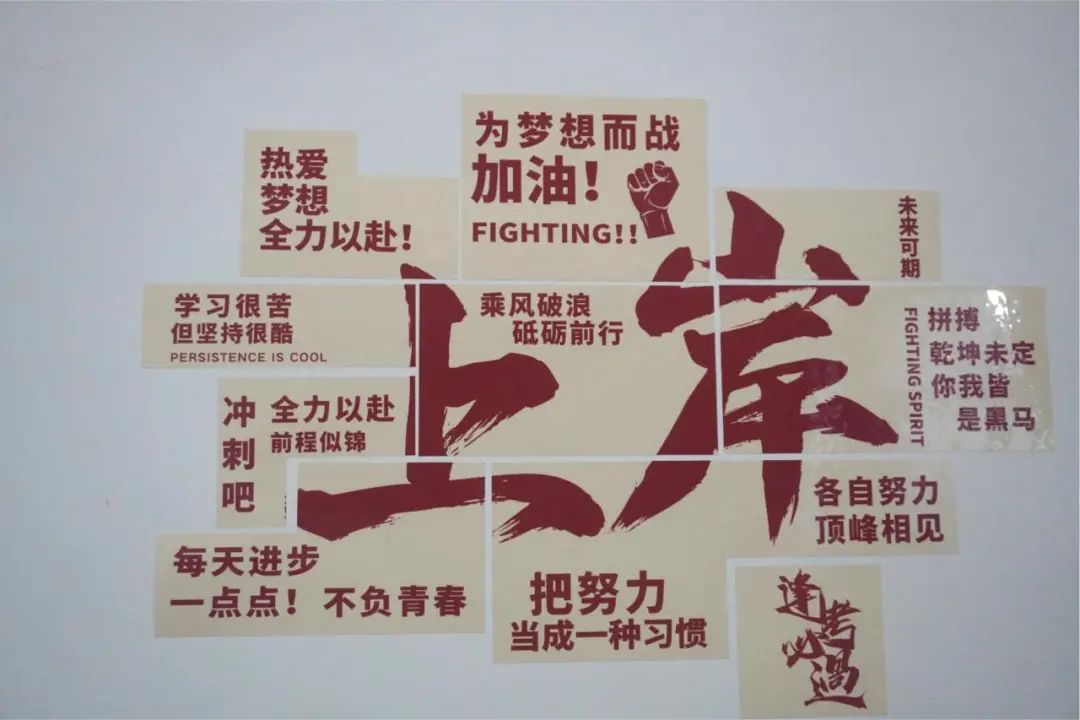 热爱
梦想
全力以赴！
为梦想而战
加油！
FIGHTING!!
未来可期
学习很苦
但坚持很酷
PERSISTENCE IS COOL
乘风破浪
砥砺前行
上岸
FIGHTING SPIRIT
拼搏
乾坤未定
你我皆
是黑马
冲刺吧
全力以赴
前程似锦
各自努力
顶峰相见
每天进步
一点点！不负青春
把努力
当成一种习惯
逢考必過